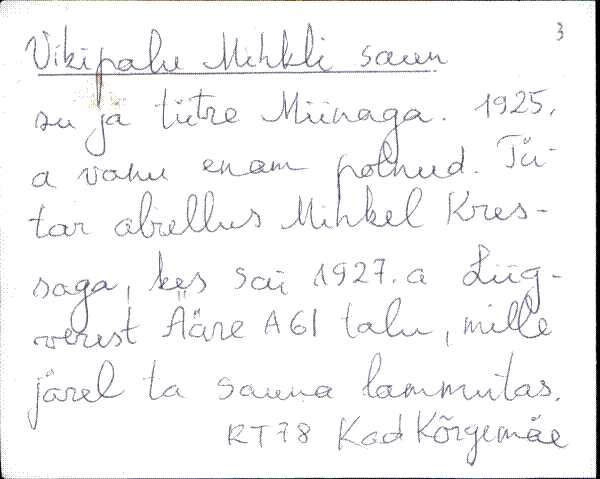 3
Vikipalu Mihkli saun
su ja tütre Miinaga. 1925.
a vanu enam polnud. Tü-
tar abiellus Mihkel Kres-
saga, kes sai 1927. a Liig-
verest Ääre A61 talu, mille
järel ta sauna lammutas.
RT78 Kad Kõrgemäe